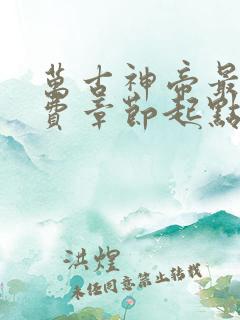 萬古神帝最
費章節起點
洪煌
未经同意禁止转载